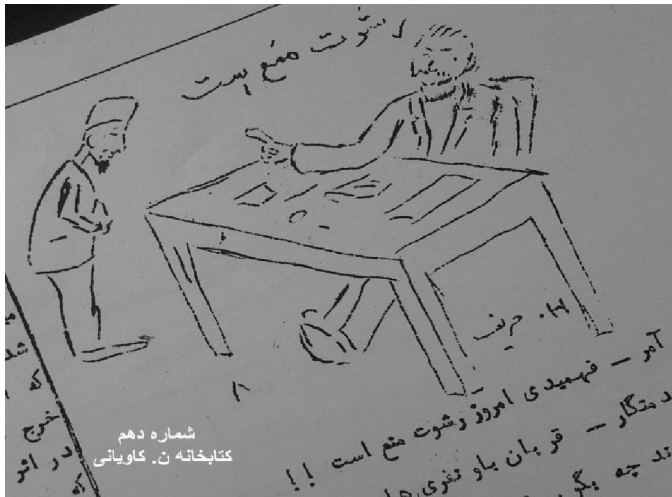 رشوت منع است
م. حریف
۸
آمر - فهمیدی امروز رشوت منع است !!
دمتگار - قربان باو نفری ها
ند چه بگو
خرج
در اثر
شماره دهم
کتابخانه ن. کاویانی